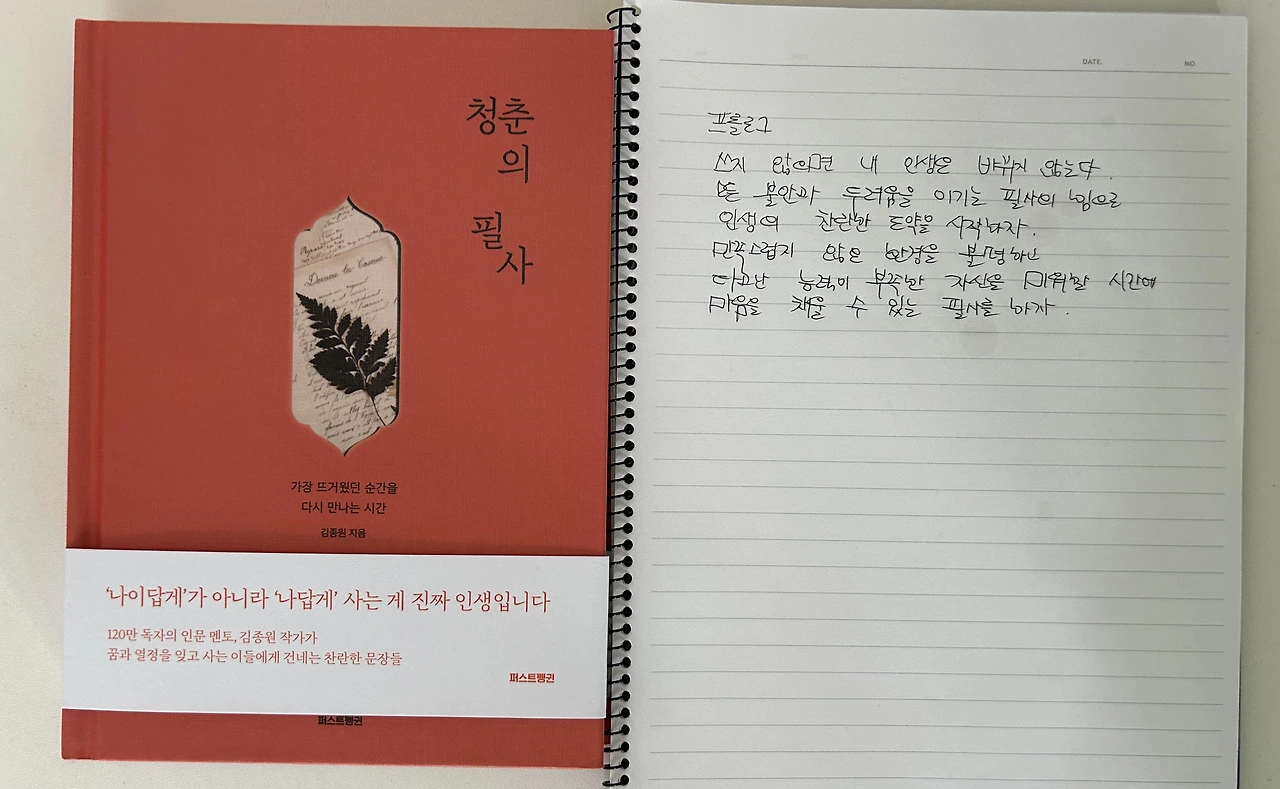 청춘
의
필
사
가장 뜨거웠던 순간을
다시 만나는 시간
김종원 지음
'나이답게'가 아니라 '나답게' 사는 게 진짜 인생입니다
120만 독자의 인문 멘토, 김종원 작가가
꿈과 열정을 잊고 사는 이들에게 건네는 찬란한 문장들
퍼스트펭귄
퍼스트펭귄
DATE.
NO.
프롤로그
쓰지 않으면 내 인생은 바뀌지 않는다.
모든 불안과 두려움을 이기는 필사의 힘으로
인생의 찬란한 도약을 시작하자.
만족스럽지 않은 환경을 불평하고
타고난 능력이 부족한 자신을 미워할 시간에
마음을 채울 수 있는 필사를 하자.